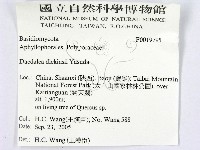 國立自然科學博物館
NATIONAL MUSEUM OF NATURAL SCIENCE
TAICHUNG, TAIWAN, R.O.CHINA
Basidiomycota
Aphyllophorales Polyporaceae
Daedalea dickinsii Yasuda
Loc.: China. Shaanxi (陝西), Baoji (寶雞), Taibai Mountain
National Forest Park (太白山國家森林公園) over
Kaitianguan (開天關)
alt. 1,900m
on living tree of Quercus sp.
Col.: H.C. Wang (王), No. Wang 588
Date: Sep. 23, 2005
Det.: H.C. Wang (王)